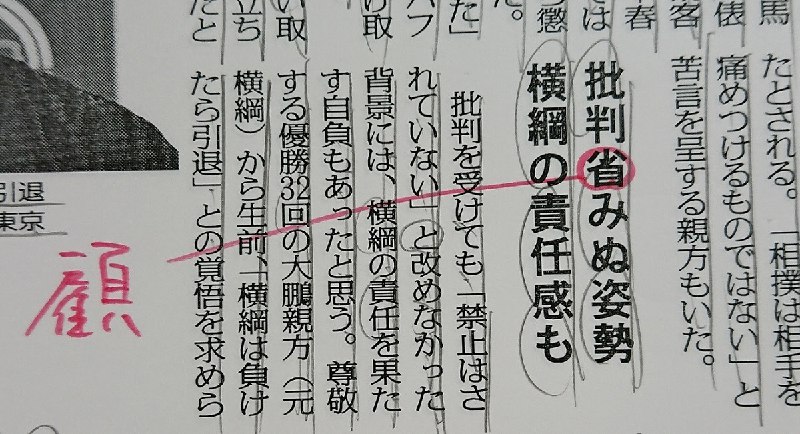 馬
俵
客
春
では
懲
た。
た」
バフ
け取
い取
立ち
たと
たとされる。「相撲は相手を
痛めつけるものではない」と
苦言を呈する親方もいた。
批判省みぬ姿勢
横綱の責任感も
批判を受けても「禁止はさ
れていない」と改めなかった
背景には、横綱の責任を果た
す自負もあったと思う。尊敬
する優勝32回の大鵬親方（元
横綱）から生前、「横綱は負け
たら引退」との覚悟を求めら
引退
東京
顧